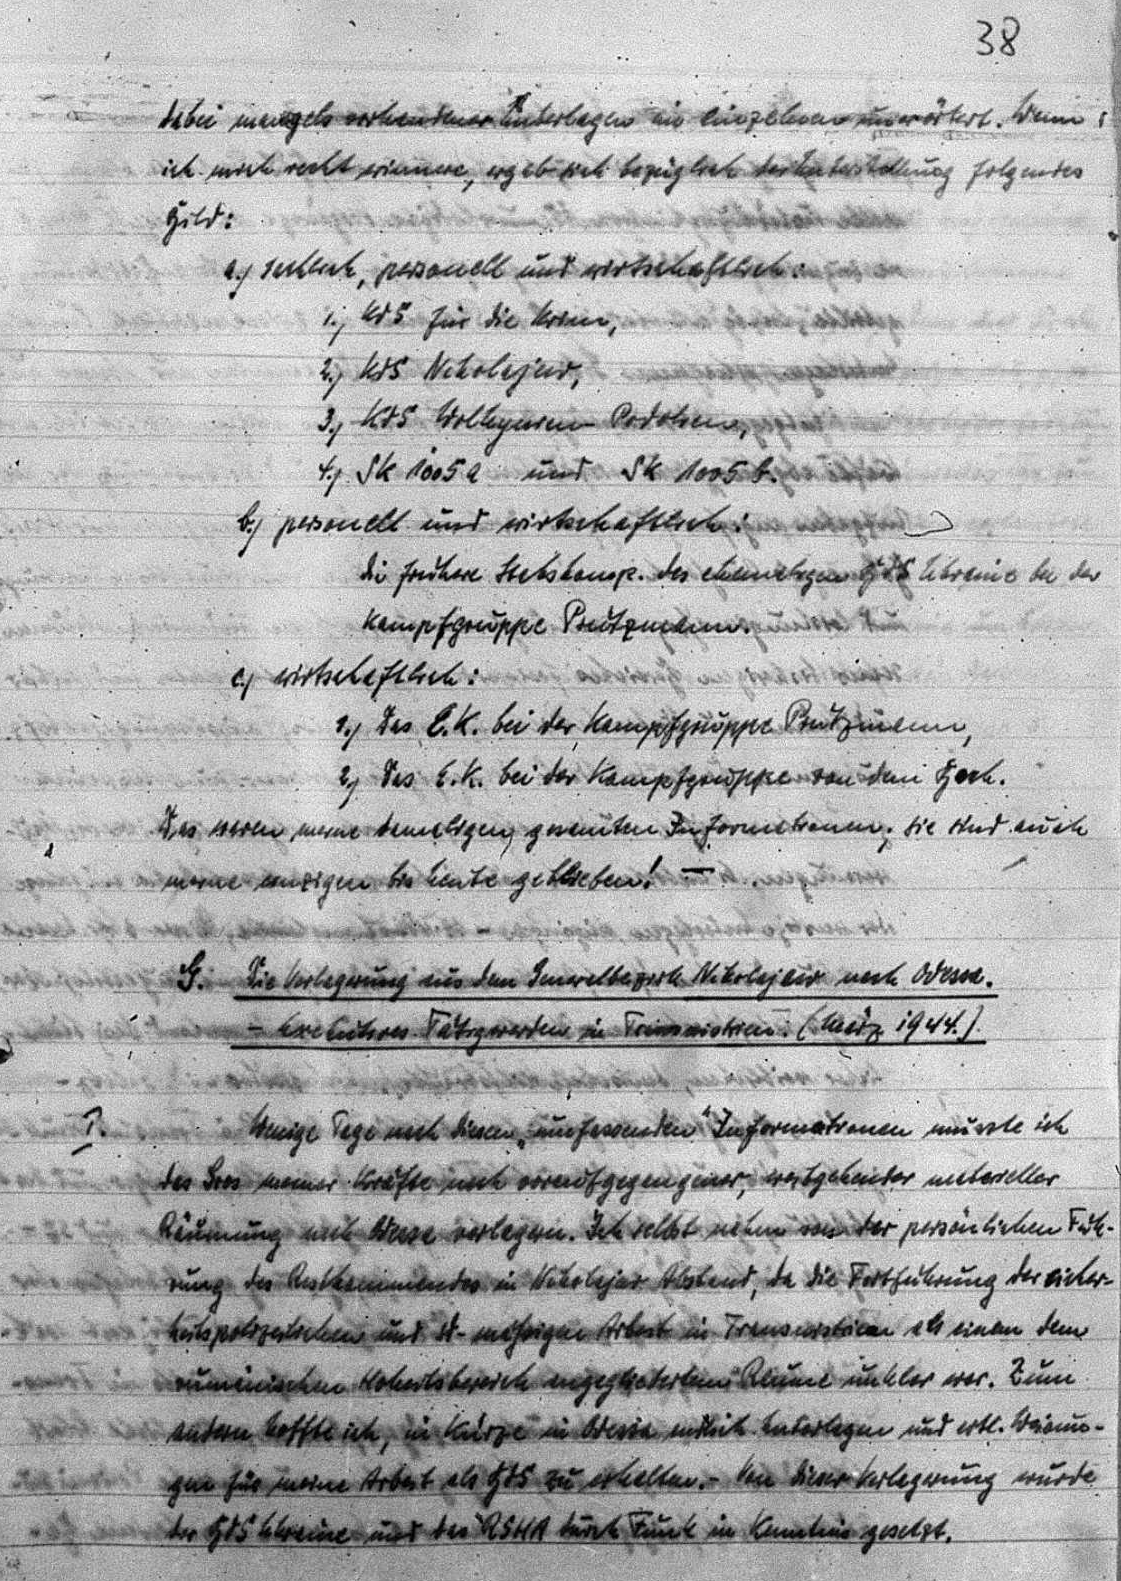 38
dabei mangels vorhandener Unterlagen im einzelnen unerörtert. Wenn
ich mich recht erinnere, ergab sich bezüglich der Unterstellung folgendes
Bild:
a.) sachlich, personell und wirtschaftlich:
1.) KdS für die Krim,
2.) KdS Nikolajew,
3.) KdS Wolhynien-Podolien,
4.) SK 1005a und SK 1005b.
b.) personell und wirtschaftlich:
die frühere Stabskomp. des ehemaligen BdS Ukraine bei der
Kampfgruppe Prützmann.
c.) wirtschaftlich:
1.) Das E.K. bei der Kampfgruppe Prützmann,
2.) Das E.K. bei der Kampfgruppe von dem Bach.
Das waren meine damaligen gesamten Informationen; sie sind auch
meine einzigen bis heute geblieben! —
G. Die Verlegerung aus dem Generalbezirk Nikolajew nach Odessa.
- Exekutives Tätigwerden in Transnistrien. (März 1944.)
I. Wenige Tage nach diesen „umfassenden" Informationen musste ich
das Gros meiner Kräfte nach voraufgegangener, weitgehender materieller
Räumung nach Odessa verlagern. Ich selbst nahm von der persönlichen Füh-
rung des Restkommandos in Nikolajew Abstand, da die Fortführung der sicher-
heitspolizeilichen und sd-mässigen Arbeit in Transnistrien als einem dem
rumänischen Hoheitsbereich angegliederten Raume unklar war. Zum
andern hoffte ich, in Kürze in Odessa endlich Unterlagen und evtl. Weisun-
gen für meine Arbeit als BdS zu erhalten.- Von dieser Verlegerung wurde
der BdS Ukraine und das RSHA durch Funk in Kenntnis gesetzt.